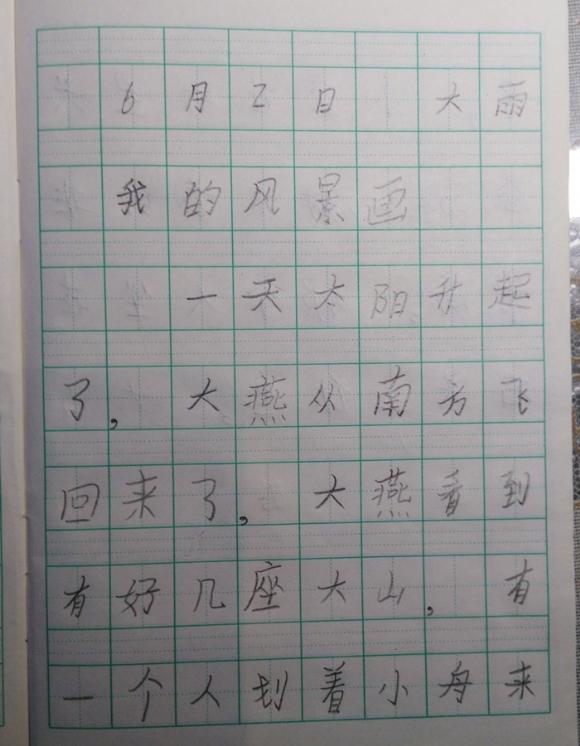 6月2日 大雨
我的风景画
一天太阳升起
了, 大燕从南方飞
回来了, 大燕看到
有好几座大山, 有
一个人划着小舟来